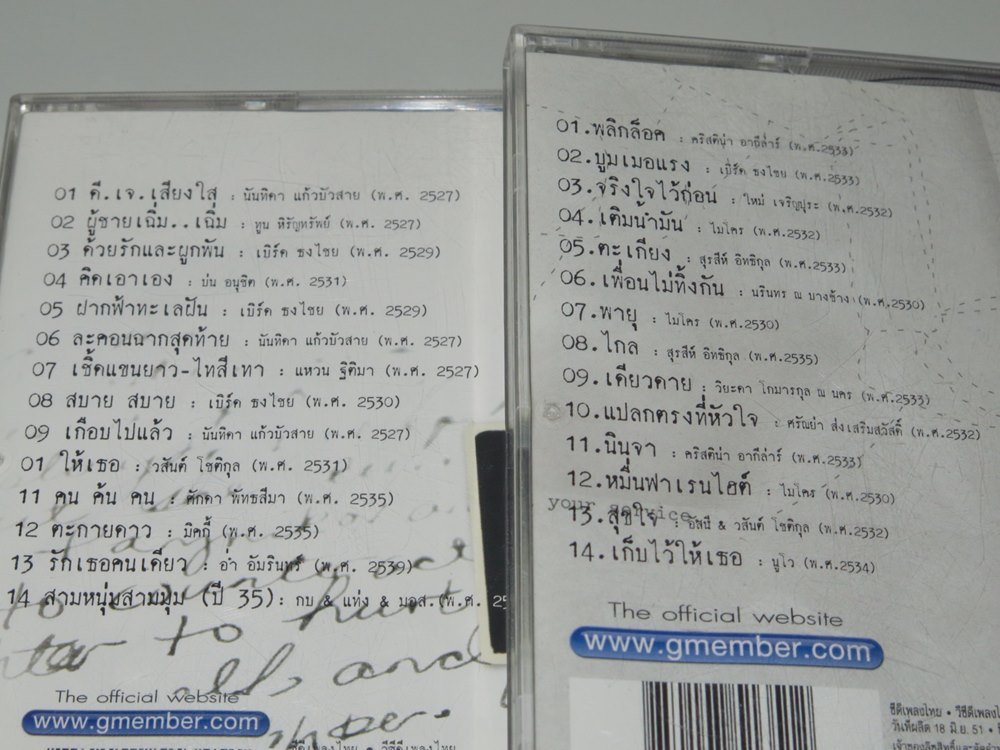 01 ดี.เจ.เสียงใส : นันทิดา แก้วบัวสาย (พ.ศ. 2527)
02 ผู้ชายเฉิ่ม..เฉิ่ม : ทูน หิรัญทรัพย์ (พ.ศ. 2527)
03 ด้วยรักและผูกพัน : เบิร์ด ธงไชย (พ.ศ. 2529)
04 คิดเอาเอง : ป่น อนุชิต (พ.ศ. 2531)
05 ฝากฟ้าทะเลฝัน : เบิร์ด ธงไชย (พ.ศ. 2529)
06 ละคอนฉากสุดท้าย : นันทิดา แก้วบัวสาย (พ.ศ. 2527)
07 เชิ้ตแขนยาว-ไทสีเทา : แหวน ฐิติมา (พ.ศ. 2527)
08 สบาย สบาย : เบิร์ด ธงไชย (พ.ศ. 2530)
09 เกือบไปแล้ว : นันทิดา แก้วบัวสาย (พ.ศ. 2527)
01 ให้เธอ : วสันต์ โชติกุล (พ.ศ. 2531)
11 คน ค้น คน : ศักดา พัทธสีมา (พ.ศ. 2535)
12 ตะกายดาว : มิคกี้ (พ.ศ. 2535)
13 รักเธอคนเดียว : อ่ำ อัมรินทร์ (พ.ศ. 2539)
14 สามหนุ่มสามมุม (ปี 35) : กบ & แท่ง & มอส (พ.ศ.
The official website
www.gmember.com
01.พลิกล็อค : คริสติน่า อากีล่าร์ (พ.ศ.2533)
02.บูมเมอแรง : เบิร์ด ธงไชย (พ.ศ.2533)
03.จริงใจไว้ก่อน : ใหม่ เจริญปุระ (พ.ศ.2532)
04.เติมน้ำมัน : ไมโคร (พ.ศ.2532)
05.ตะเกียง : สุรสีห์ อิทธิกุล (พ.ศ.2533)
06.เพื่อนไม่ทิ้งกัน : นรินทร ณ บางช้าง (พ.ศ.2530)
07.พายุ : ไมโคร (พ.ศ.2530)
08.ไกล : สุรสีห์ อิทธิกุล (พ.ศ.2535)
09.เดียวดาย : วิยะดา โกมารกุล ณ นคร (พ.ศ.2533)
10.แปลกตรงที่หัวใจ : ศรัณย่า ส่งเสริมสวัสดิ์ (พ.ศ.2532)
11.นินจา : คริสติน่า อากีล่าร์ (พ.ศ.2533)
12.หมื่นฟาเรนไฮต์ : ไมโคร (พ.ศ.2530)
your service
13.สุขใจ : อัสนี & วสันต์ โชติกุล (พ.ศ.2532)
14.เก็บไว้ให้เธอ : นูโว (พ.ศ.2534)
The official website
www.gmember.com
ซีดีเพลงไทย • วีซีดีเพลงไ
วันที่ผลิต 18 มิ.ย. 51 •